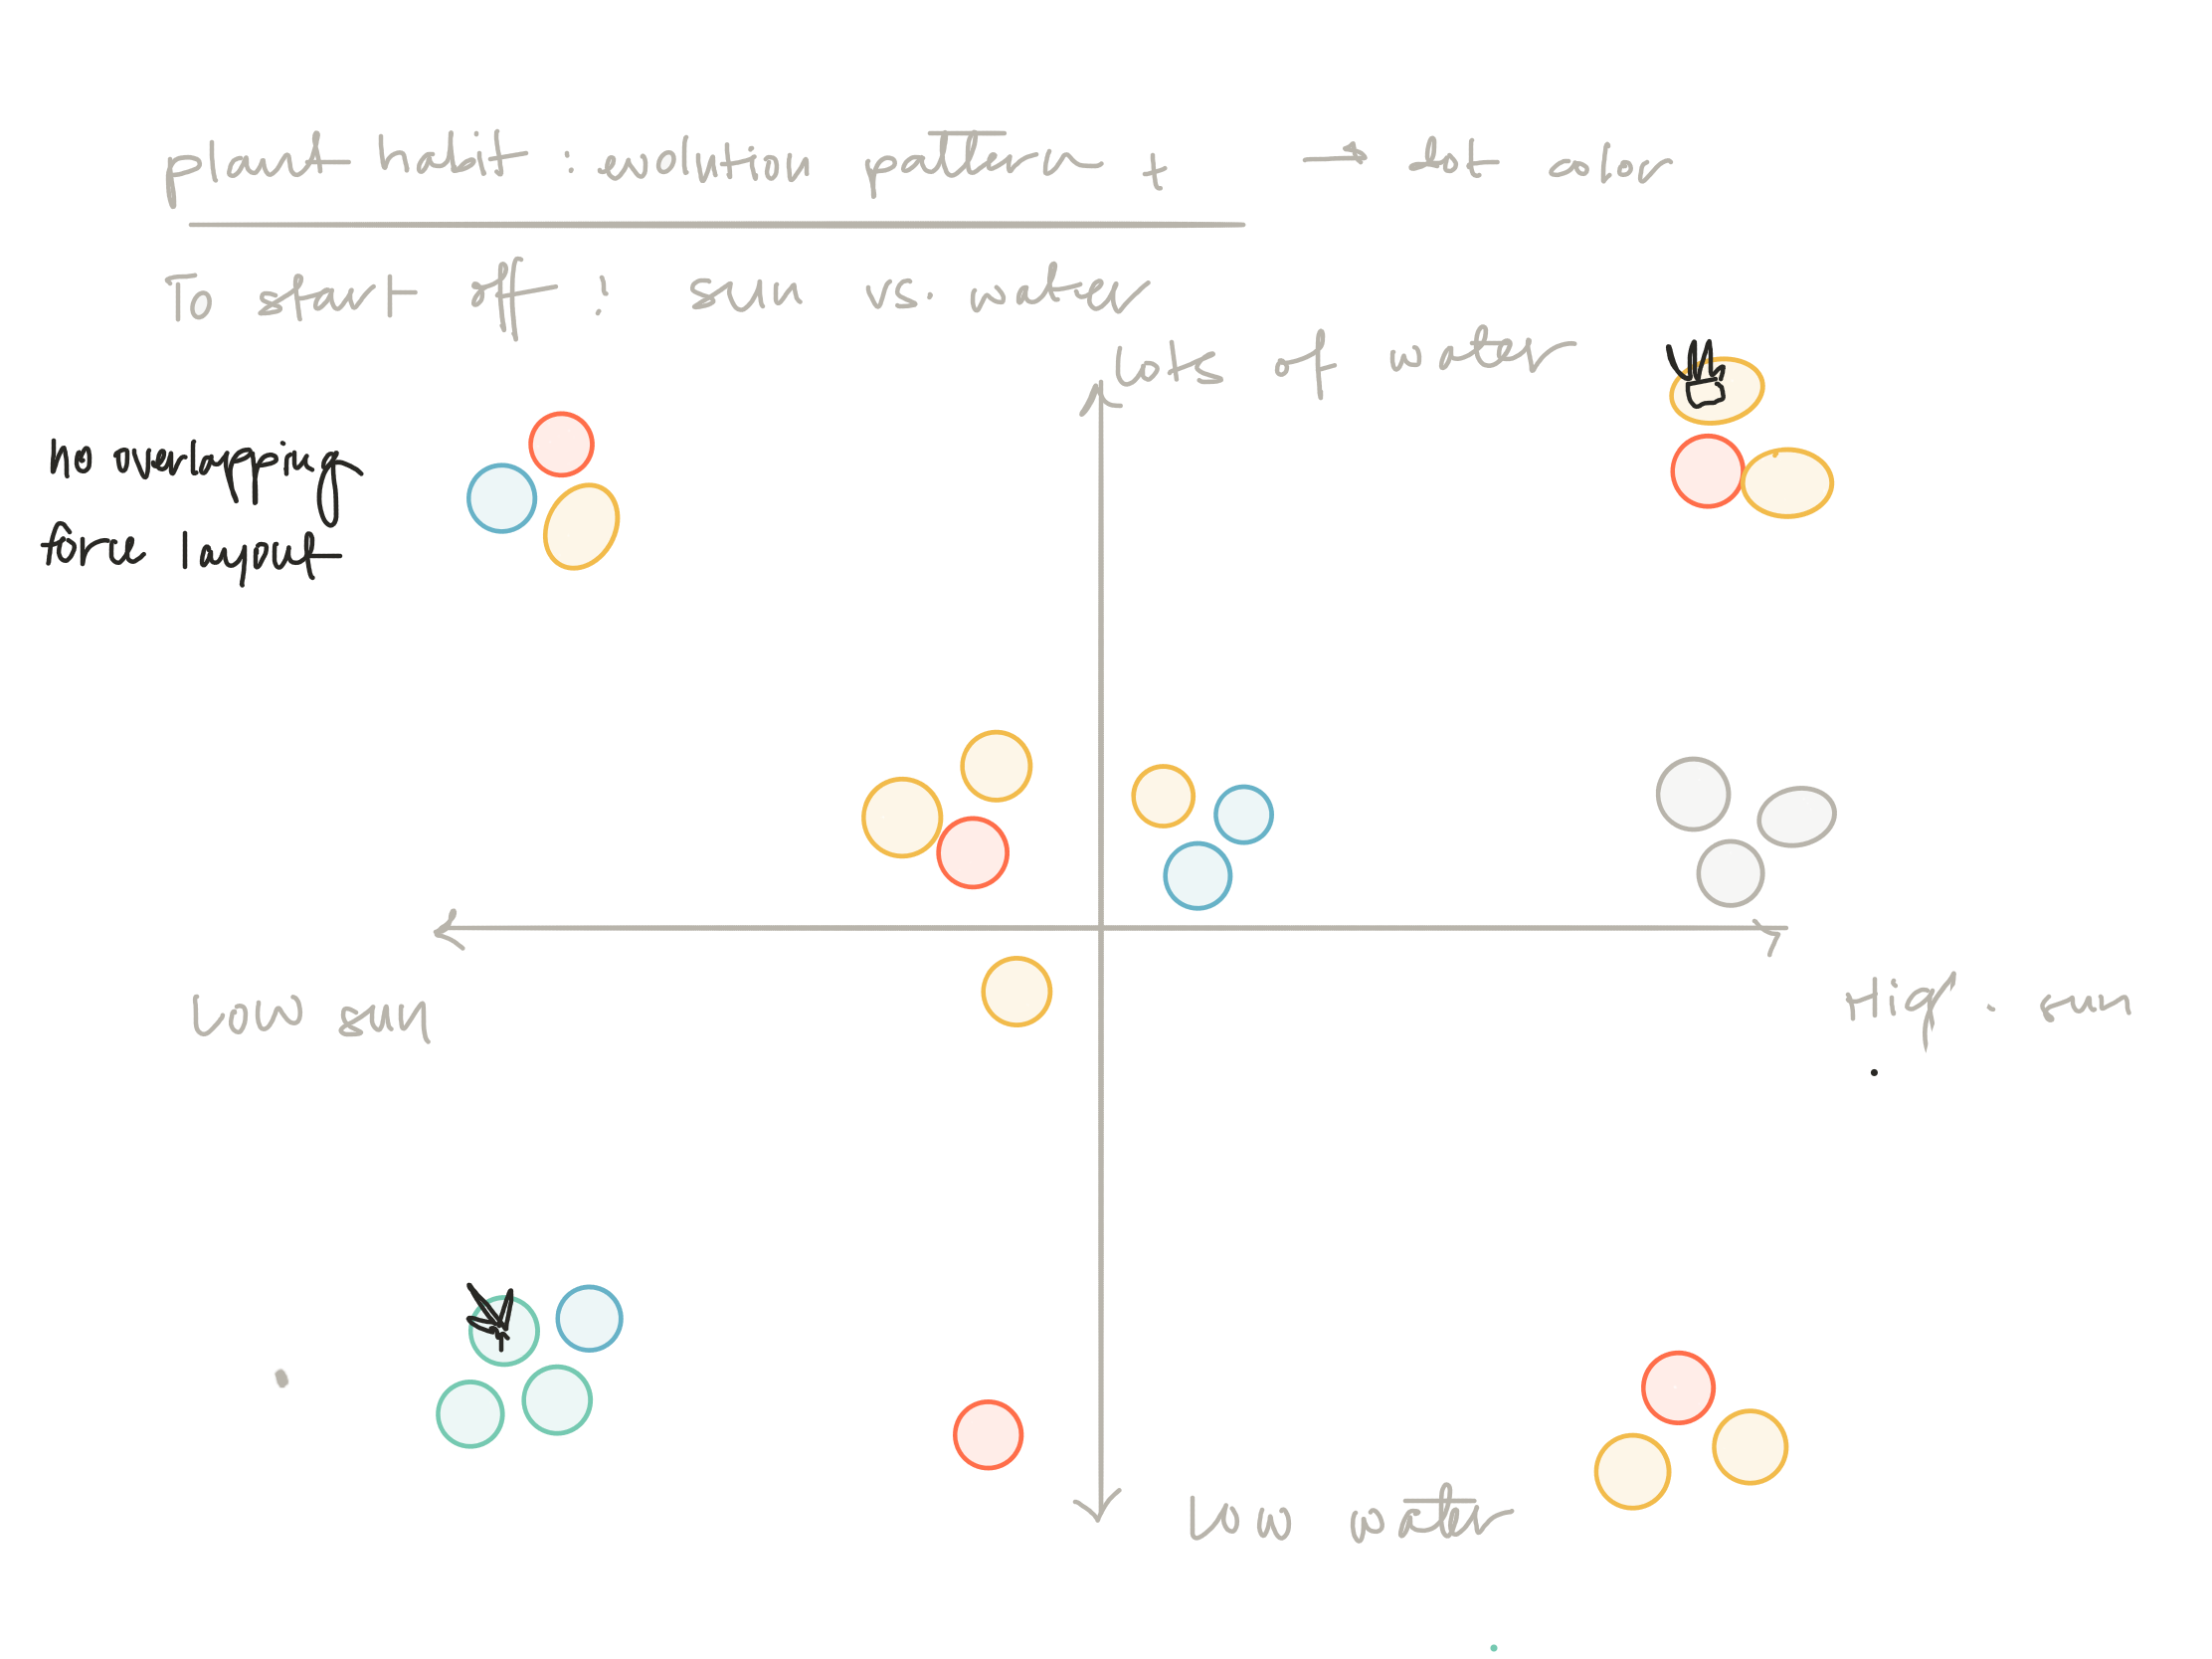 plant habit : evolution pattern t → dot color
To start off : sun vs. water
Lots of water
No overlapping
force layout
Low sun
High sun
Low water